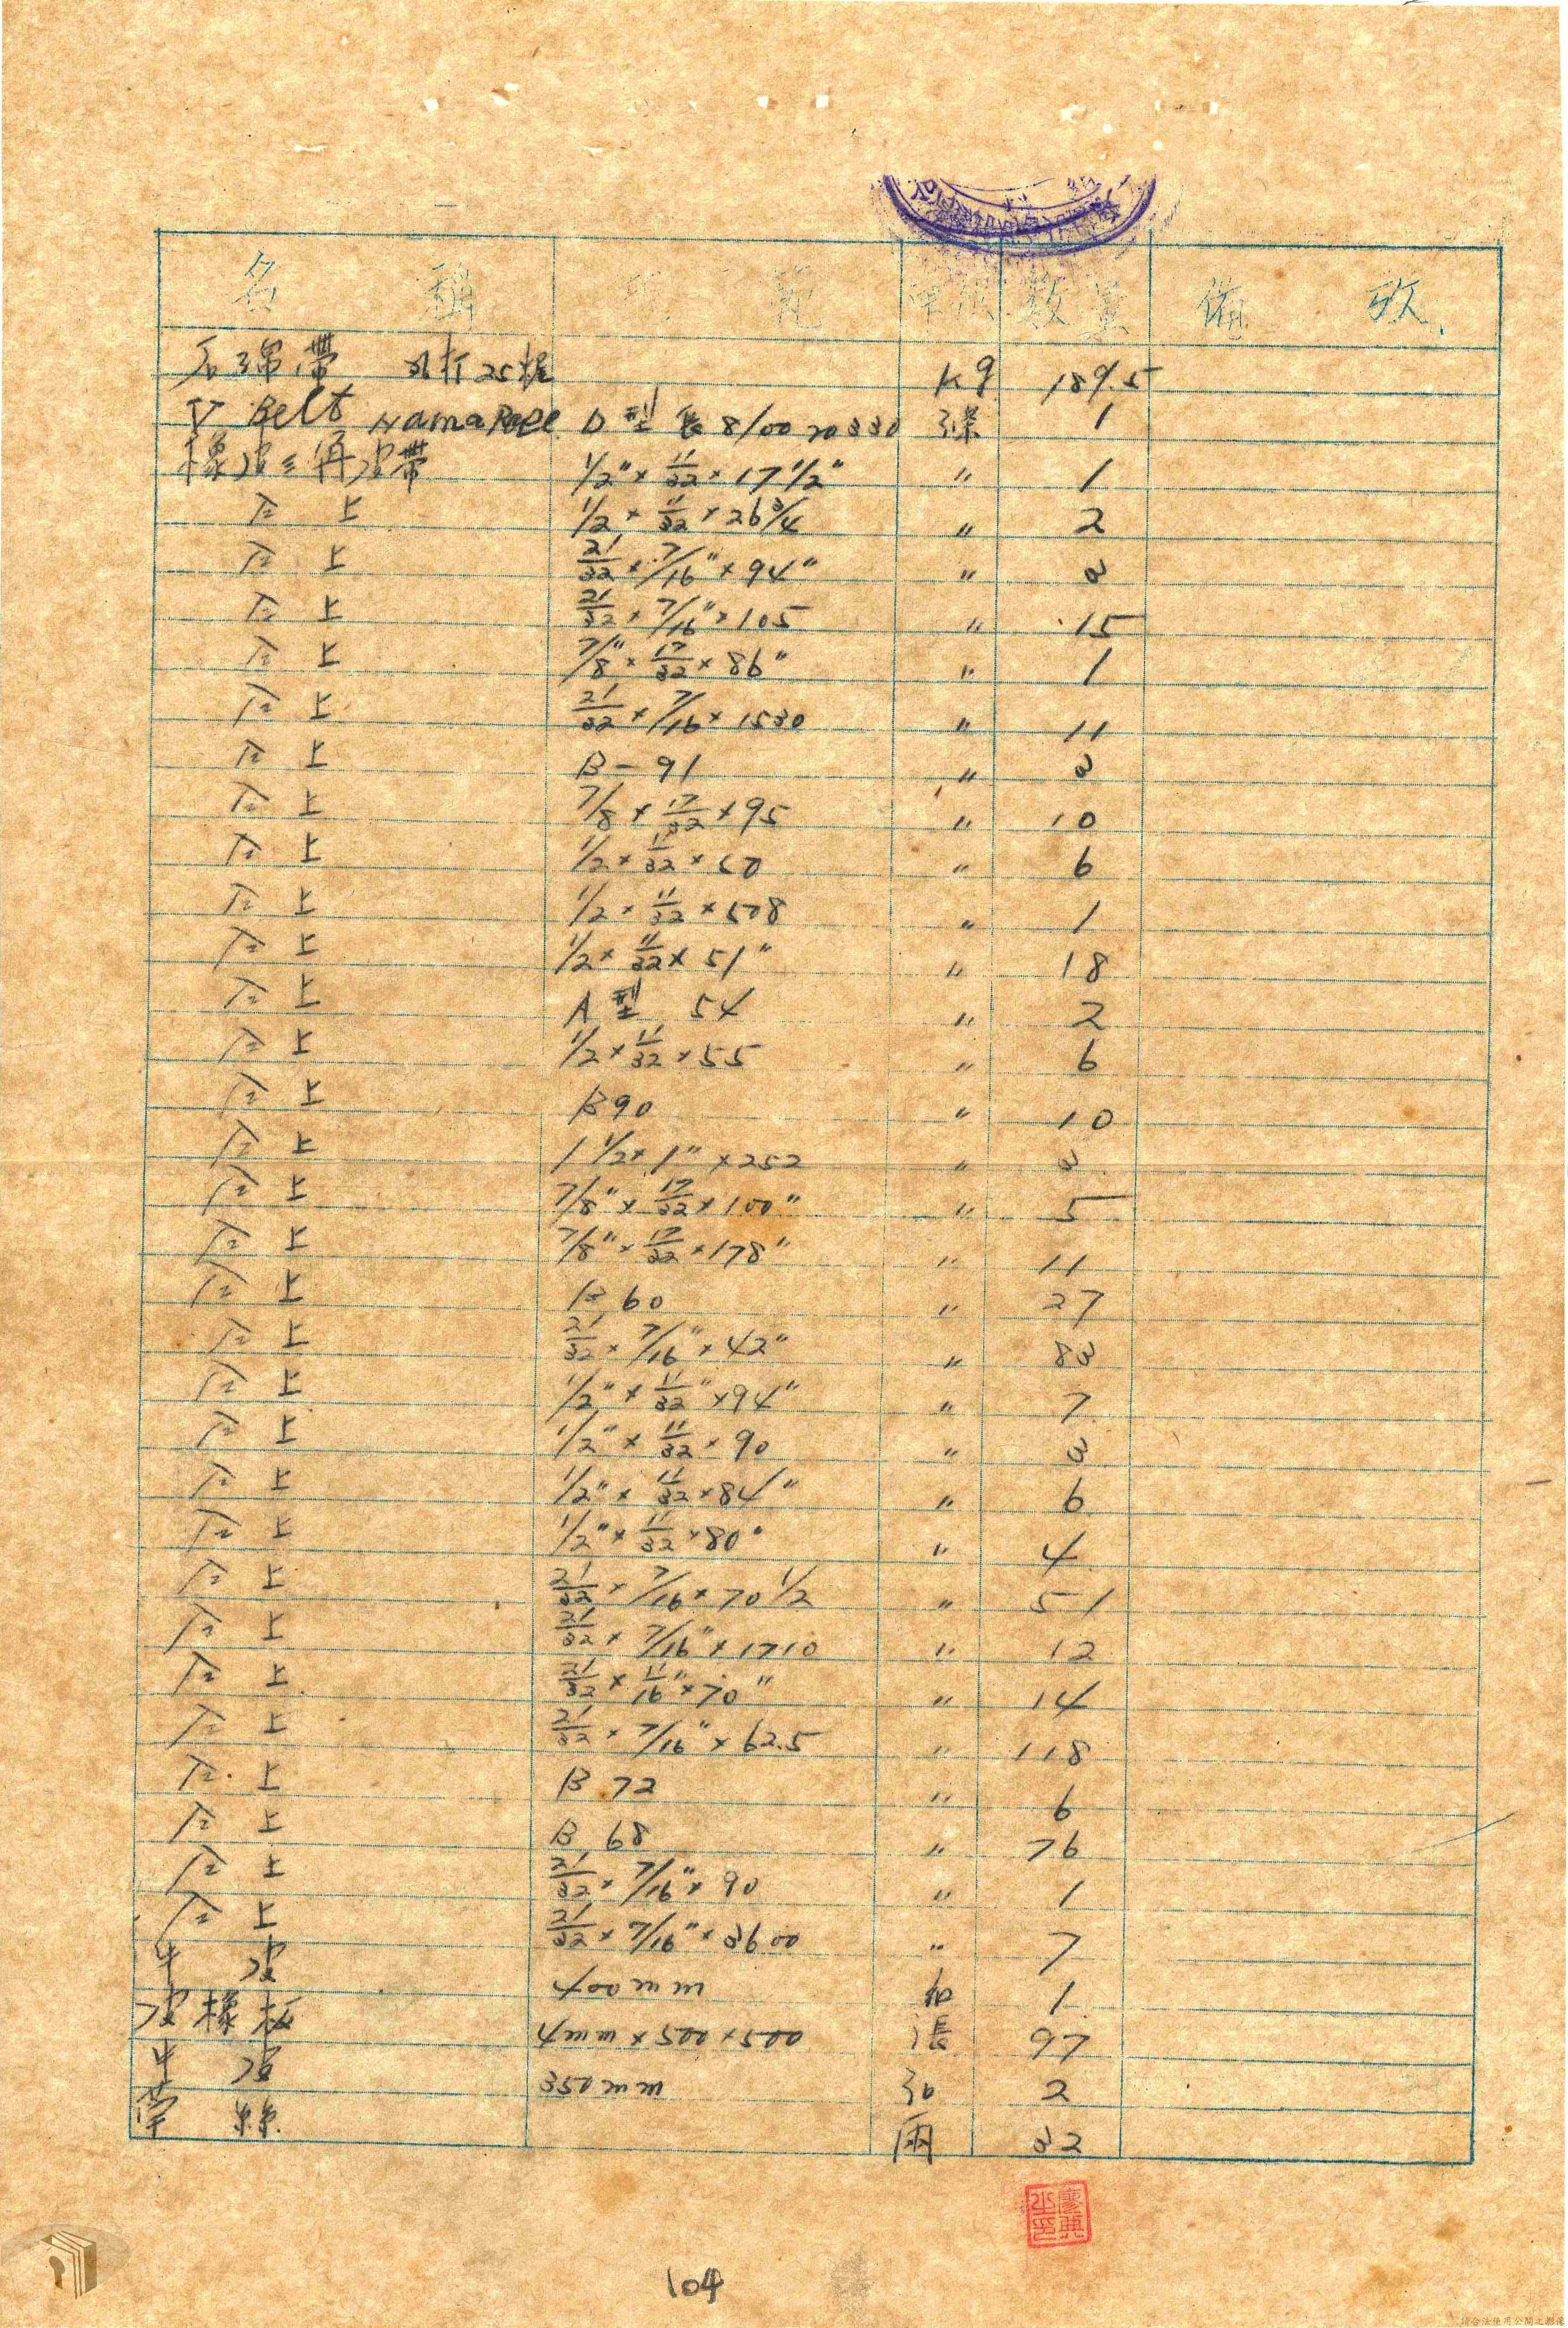 名 稱 規 範 單位 數量 備 攷
帶 25 Kg 189.5
V Belt D型 長8100 條 1
橡皮三角皮帶 1/2" × 11/32 × 17 1/2" " 1
仝 上 1/2 × 11/32 × 26 3/4 " 2
仝 上 21/32 × 7/16" × 94" " 3
仝 上 21/32 × 7/16" × 105 " 15
仝 上 7/8" × 17/32 × 86" " 1
仝 上 21/32 × 7/16 × 1530 " 11
仝 上 B-91 " 3
仝 上 7/8 × 17/32 × 95 " 10
仝 上 1/2 × 11/32 × 60 " 6
仝 上 1/2 × 11/32 × 508 " 1
仝 上 1/2 × 11/32 × 51" " 18
仝 上 A型 54 " 2
仝 上 1/2 × 11/32 × 55 " 6
仝 上 B90 " 10
仝 上 1 1/2 × 1" × 252 " 3
仝 上 7/8" × 17/32 × 100" " 5
仝 上 7/8" × 17/32 × 178" " 11
仝 上 B 60 " 27
仝 上 21/32 × 7/16" × 42" " 83
仝 上 1/2" × 11/32" × 94" " 7
仝 上 1/2" × 11/32 × 90 " 3
仝 上 1/2" × 11/32 × 84" " 6
仝 上 1/2" × 11/32 × 80" " 4
仝 上 21/32 × 7/16 × 70 1/2 " 51
仝 上 21/32 × 7/16" × 1710 " 12
仝 上 21/32 × 11/16" × 70" " 14
仝 上 21/32 × 7/16" × 62.5 " 118
仝 上 B 72 " 6
仝 上 B 68 " 76
仝 上 21/32 × 7/16" × 90 " 1
仝 上 21/32 × 7/16" × 3600 " 7
牛 皮 400mm 1
皮橡板 4mm × 500 × 500 張 97
牛 皮 350mm 2
絲 兩 32
104